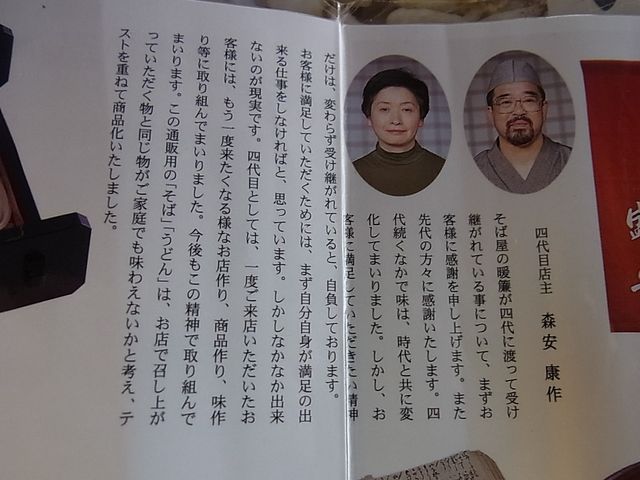 四代目店主 森安 康作
そば屋の暖簾が四代に渡って受け
継がれている事について、まずお
客様に感謝を申し上げます。また
先代の方々に感謝いたします。四
代続くなかで味は、時代と共に変
化してまいりました。しかし、お
客様に満足していただきたい精神
だけは、変わらず受け継がれていると、自負しております。
お客様に満足していただくためには、まず自分自身が満足の出
来る仕事をしなければと、思っています。しかしなかなか出来
ないのが現実です。四代目としては、一度ご来店いただいたお
客様には、もう一度来たくなる様なお店作り、商品作り、味作
り等に取り組んでまいりました。今後もこの精神で取り組んで
まいります。この通販用の「そば」「うどん」は、お店で召し上が
っていただく物と同じ物がご家庭でも味わえないかと考え、テ
ストを重ねて商品化いたしました。